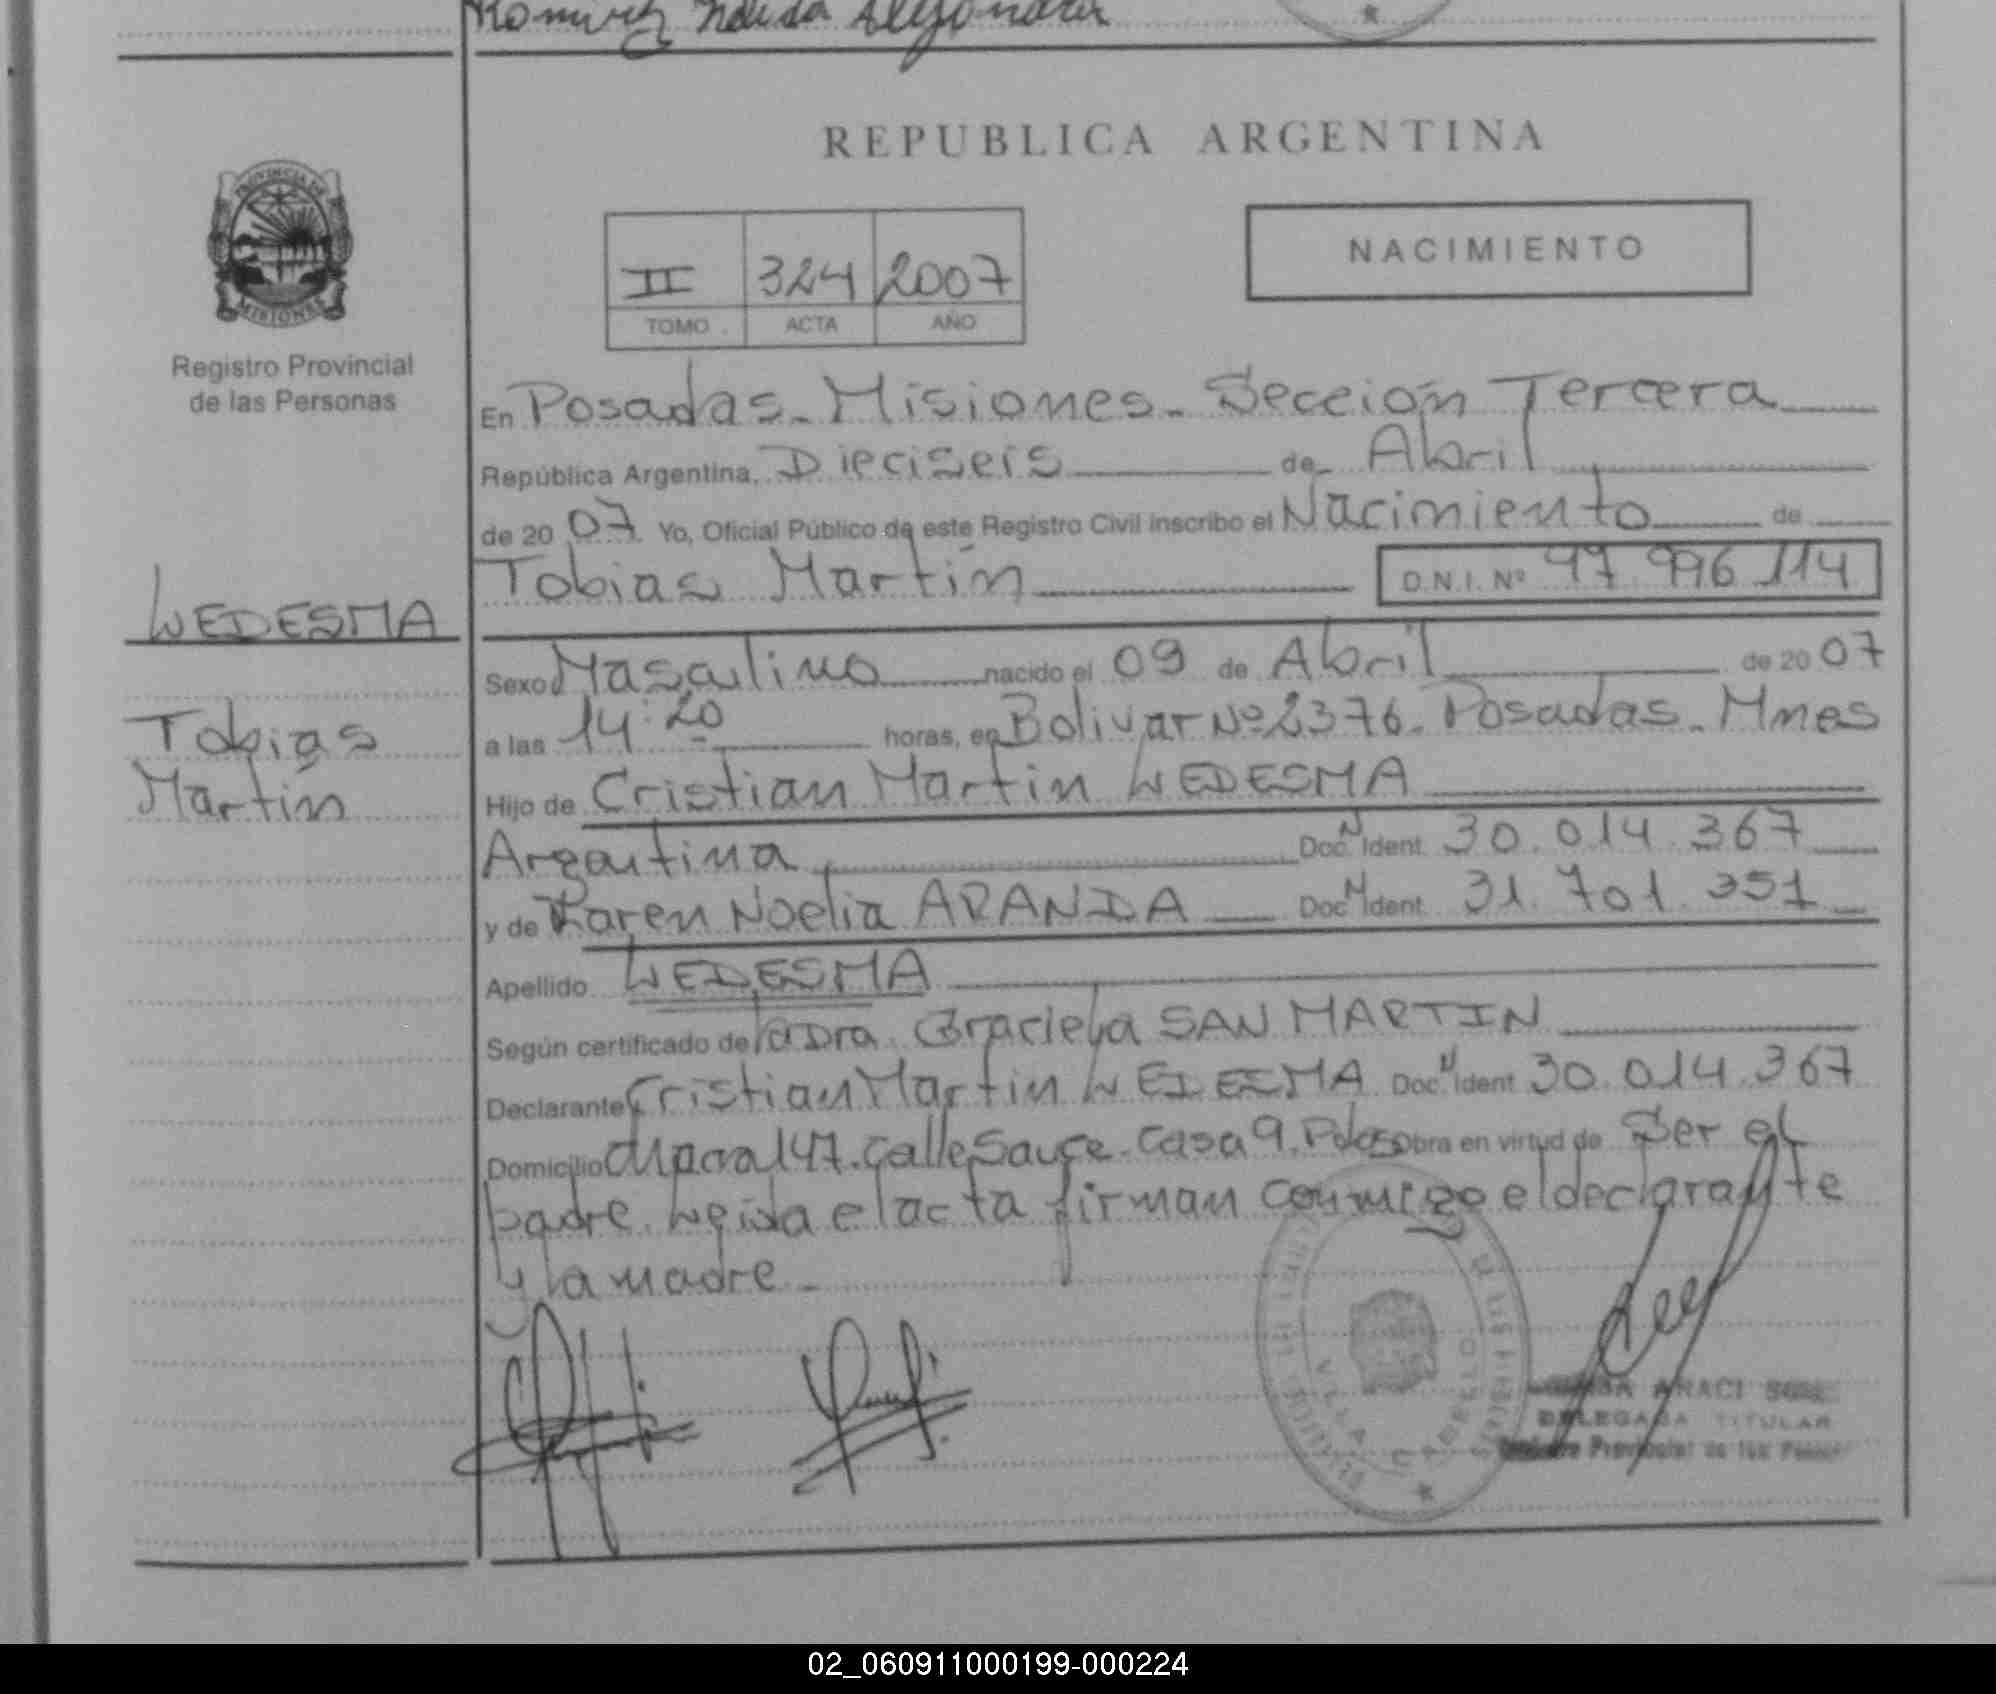 Ramirez Nélida Alejandra
REPUBLICA ARGENTINA
PROVINCIA DE
MISIONES
Registro Provincial
de las Personas
II 324 2007
TOMO ACTA AÑO
NACIMIENTO
En Posadas - Misiones - Sección Tercera
República Argentina, Dieciseis de Abril
de 2007 Yo, Oficial Público de este Registro Civil inscribo el Nacimiento de
Tobias Martín D.N.I. Nº 47 996 114
LEDESMA
Tobias
Martín
Sexo Masculino nacido el 09 de Abril de 2007
a las 14:20 horas, en Bolivar Nº 2376. Posadas - Mnes
Hijo de Cristian Martin LEDESMA
Argentina Doc. N Ident. 30.014.367
y de Karen Noelia ARANDA Doc. N Ident. 31.701.351
Apellido LEDESMA
Según certificado de la Dra. Graciela SAN MARTIN
Declarante Cristian Martin LEDESMA Doc. N Ident 30.014.367
Domicilio Chacra 147. Calle Sauce. Casa 9. Pdas Obra en virtud de Ser el
padre. Leida el acta firman conmigo el declarante
y la madre -
VILLA CABELLO
ARACI
DELEGADA TITULAR
Provincial de las
02_060911000199-000224